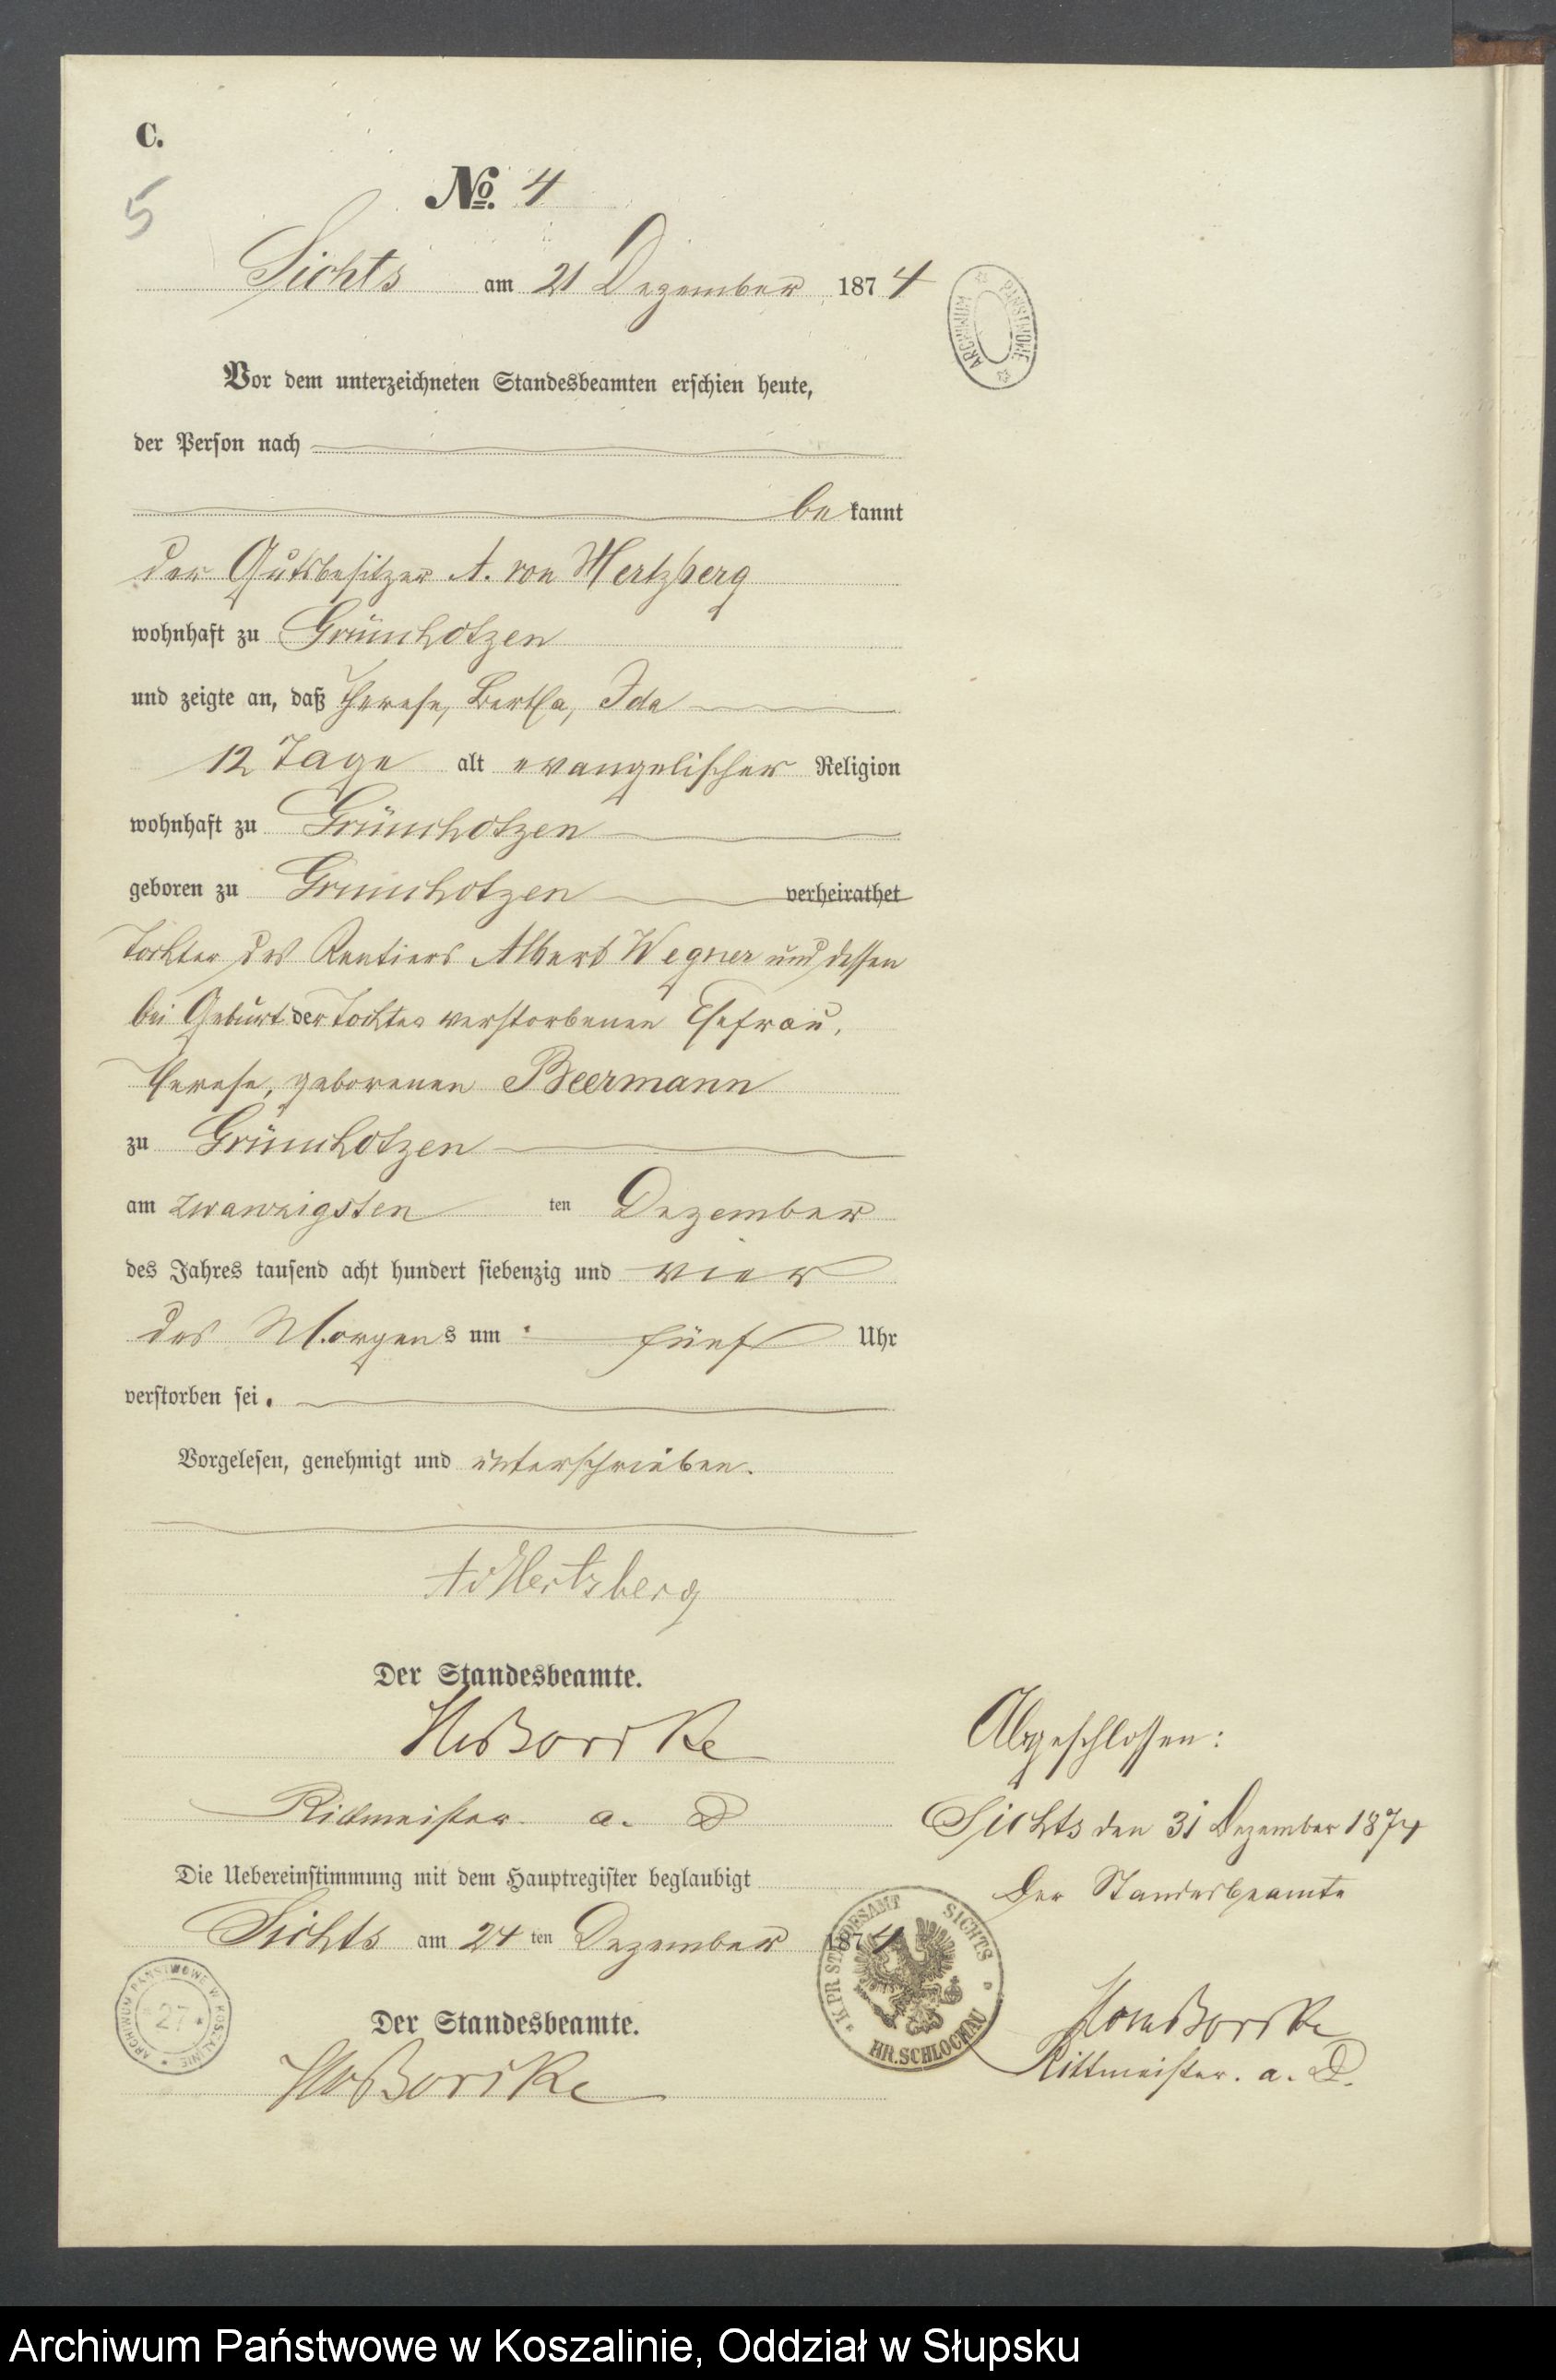 C.
5
No. 4
Sichts am 21 Dezember 1874
ARCHIWUM PAŃSTWOWE
Vor dem unterzeichneten Standesbeamten erschien heute,
der Person nach
be kannt
der Gutsbesitzer A. von Hertzberg
wohnhaft zu Grünchotzen
und zeigte an, daß Therese, Bertha, Ida
12 Tage alt evangelischer Religion
wohnhaft zu Grünchotzen
geboren zu Grünchotzen verheirathet
Tochter des Rentiers Albert Wegner und dessen
bei Geburt der Tochter verstorbenen Ehefrau,
Therese, geborenen Beermann
zu Grünchotzen
am zwanzigsten ten Dezember
des Jahres tausend acht hundert siebenzig und vier
des Morgens um fünf Uhr
verstorben sei.
Vorgelesen, genehmigt und unterschrieben.
AvHertzberg
Der Standesbeamte.
Rittmeister a. D
Die Uebereinstimmung mit dem Hauptregister beglaubigt
Sichts am 24 ten Dezember 1874
Der Standesbeamte.
Abgeschlossen:
Sichts den 31 Dezember 1874
Der Standesbeamte
Rittmeister. a. D.
K. PR STANDESAMT SICHTS
KR. SCHLOCHAU
ARCHIWUM PAŃSTWOWE W KOSZALINIE
27
Archiwum Państwowe w Koszalinie, Oddział w Słupsku